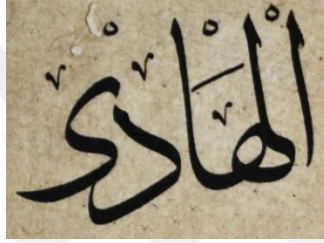 الْهَادْى